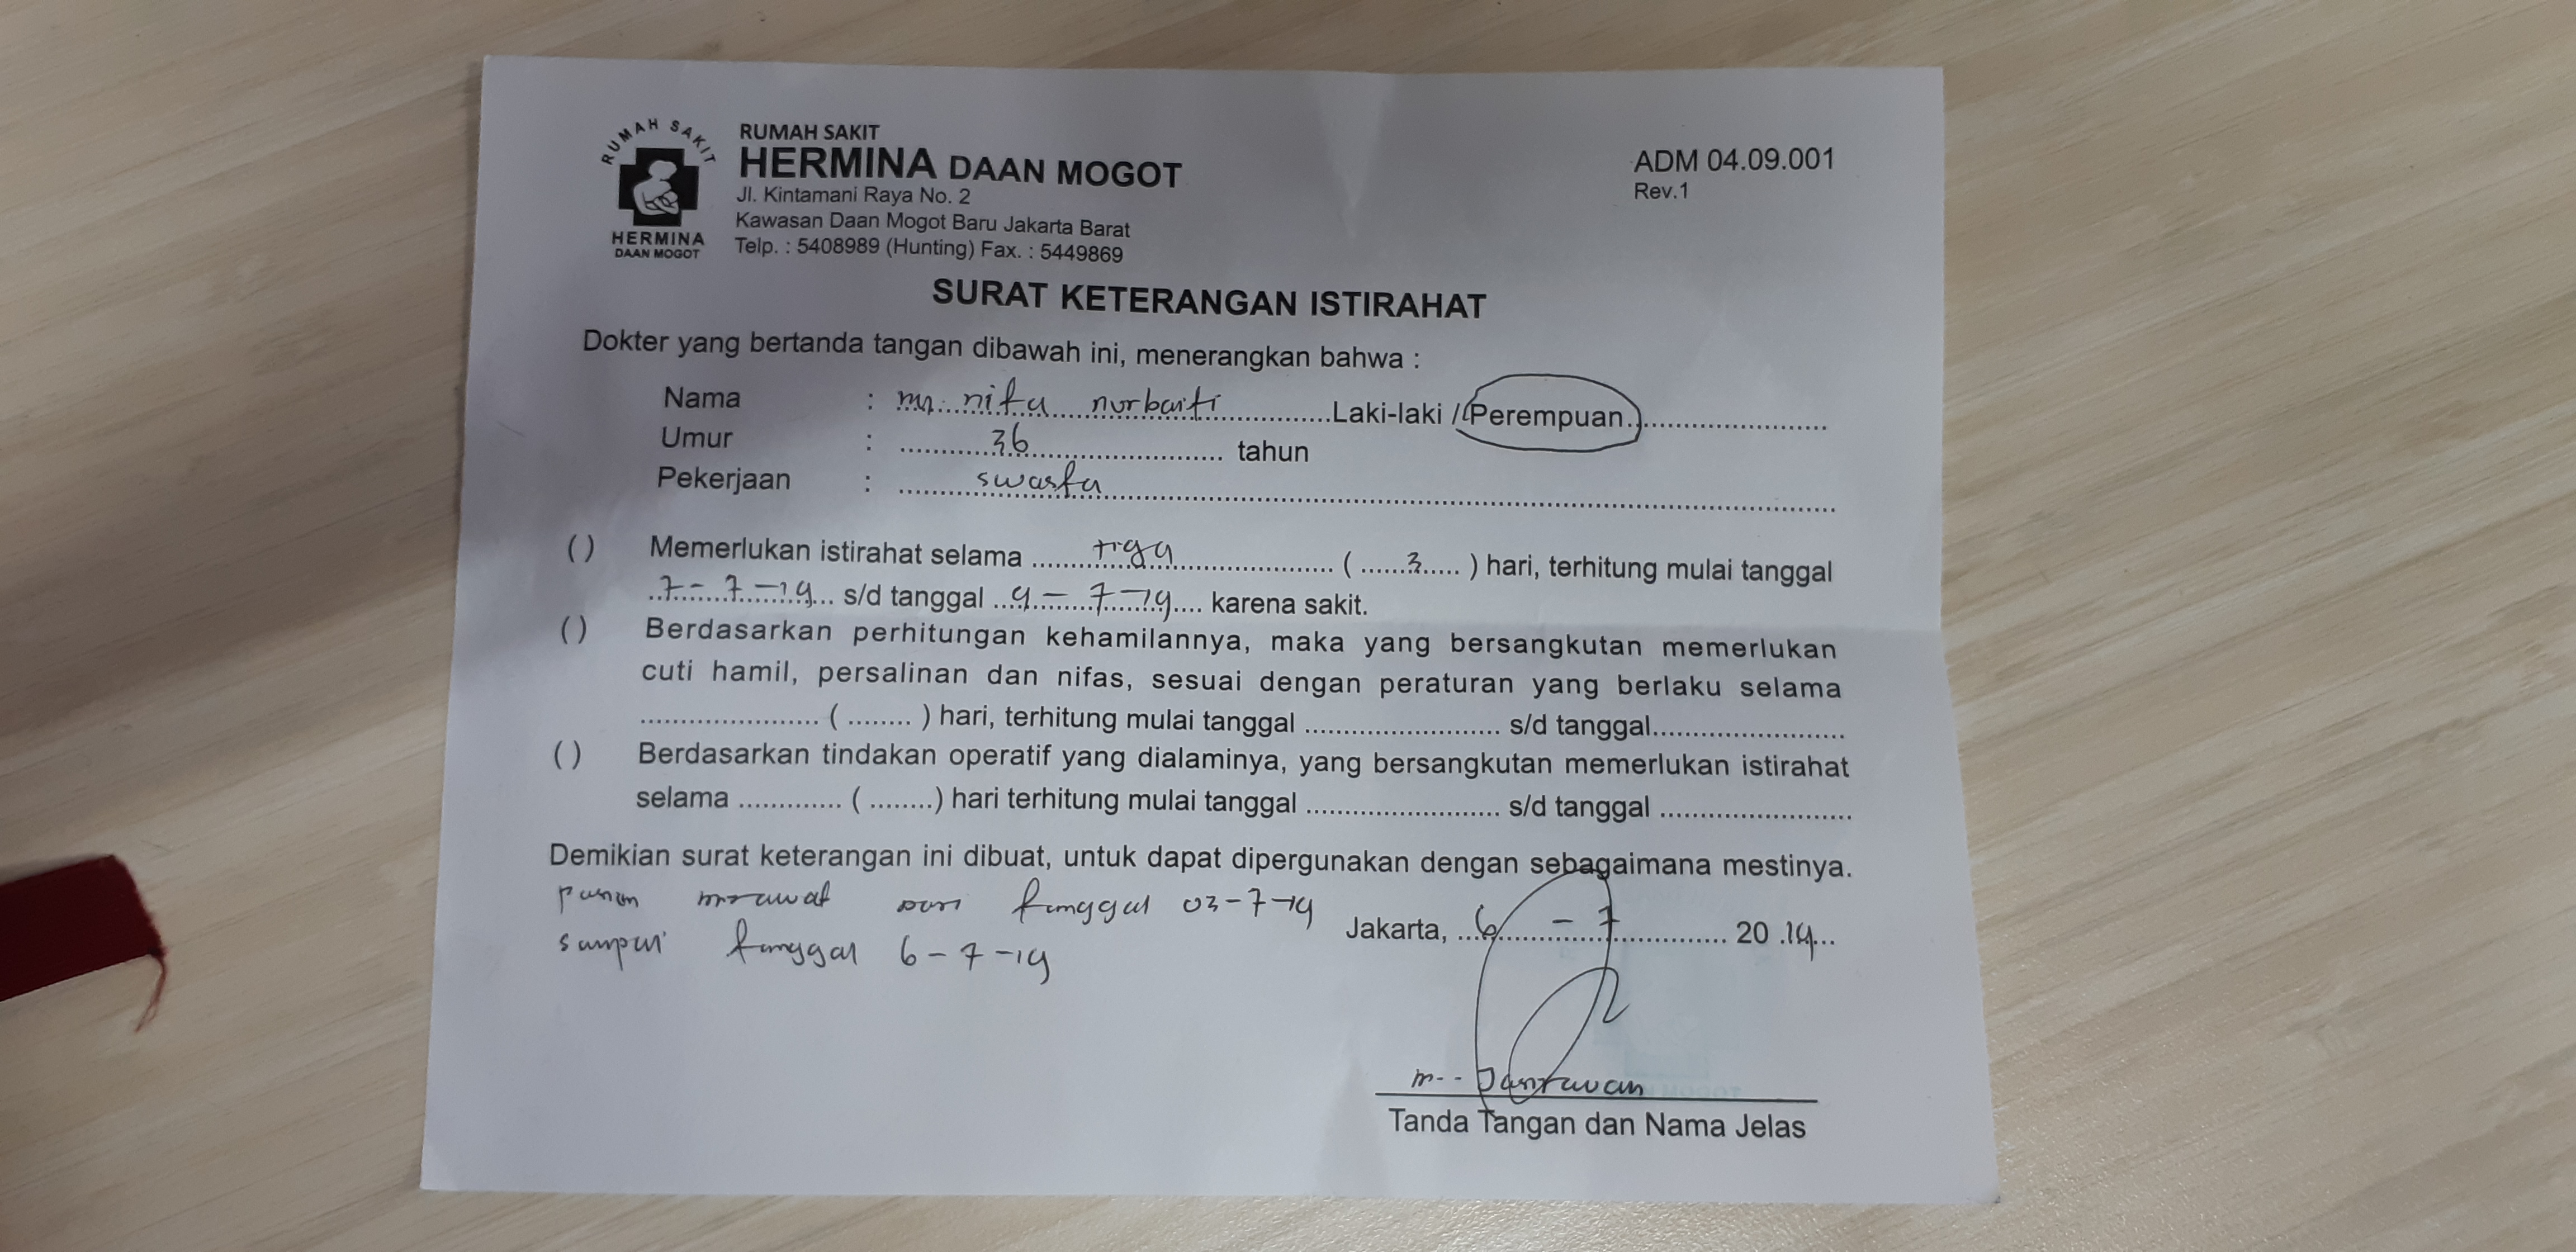 RUMAH SAKIT
HERMINA
DAAN MOGOT
RUMAH SAKIT
HERMINA DAAN MOGOT
Jl. Kintamani Raya No. 2
Kawasan Daan Mogot Baru Jakarta Barat
Telp. : 5408989 (Hunting) Fax. : 5449869
ADM 04.09.001
Rev.1
SURAT KETERANGAN ISTIRAHAT
Dokter yang bertanda tangan dibawah ini, menerangkan bahwa :
Nama : ny. nita nurbanti Laki-laki / Perempuan
Umur : 36 tahun
Pekerjaan : swasta
( ) Memerlukan istirahat selama tiga ( 3 ) hari, terhitung mulai tanggal
7-7-19 s/d tanggal 9-7-19 karena sakit.
( ) Berdasarkan perhitungan kehamilannya, maka yang bersangkutan memerlukan
cuti hamil, persalinan dan nifas, sesuai dengan peraturan yang berlaku selama
.................. ( ....... ) hari, terhitung mulai tanggal .................... s/d tanggal....................
( ) Berdasarkan tindakan operatif yang dialaminya, yang bersangkutan memerlukan istirahat
selama ............ ( .......) hari terhitung mulai tanggal .................... s/d tanggal ....................
Demikian surat keterangan ini dibuat, untuk dapat dipergunakan dengan sebagaimana mestinya.
pasien dirawat dari tanggal 03-7-19
sampai tanggal 6-7-19
Jakarta, 6 - 7 2019
Tanda Tangan dan Nama Jelas